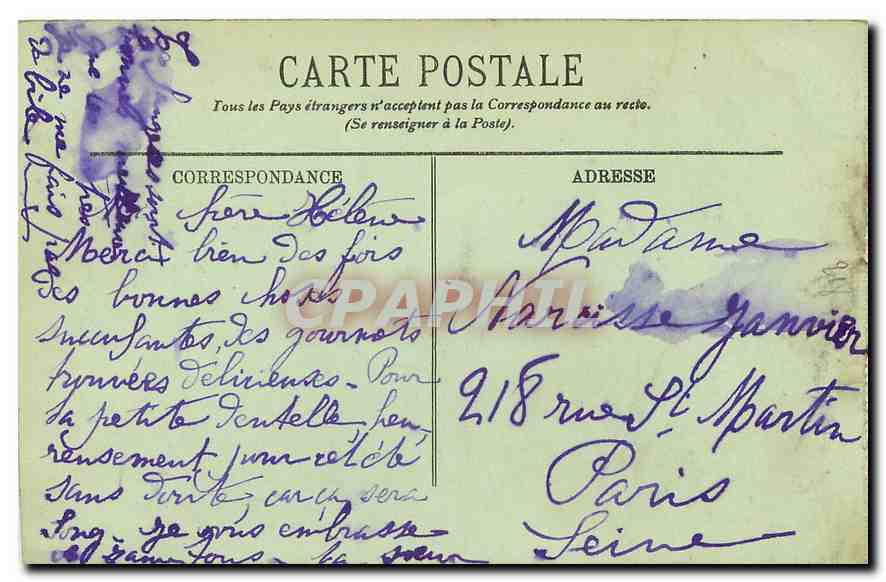 CARTE POSTALE
Tous les Pays étrangers n'acceptent pas la Correspondance au recto.
(Se renseigner à la Poste).
CORRESPONDANCE
Hélène
Merci bien des fois
des bonnes choses
succulentes, des gourmets
trouvées délicieuses - Pour
la petite dentelle, heu-
reusement pour cet été
sans doute, car ça sera
long. Je vous embrasse
tous - la sœur
ne me fais pas
de bile
ADRESSE
Madame
Narcisse Janvier
218 rue St. Martin
Paris
Seine
CPAPHIL